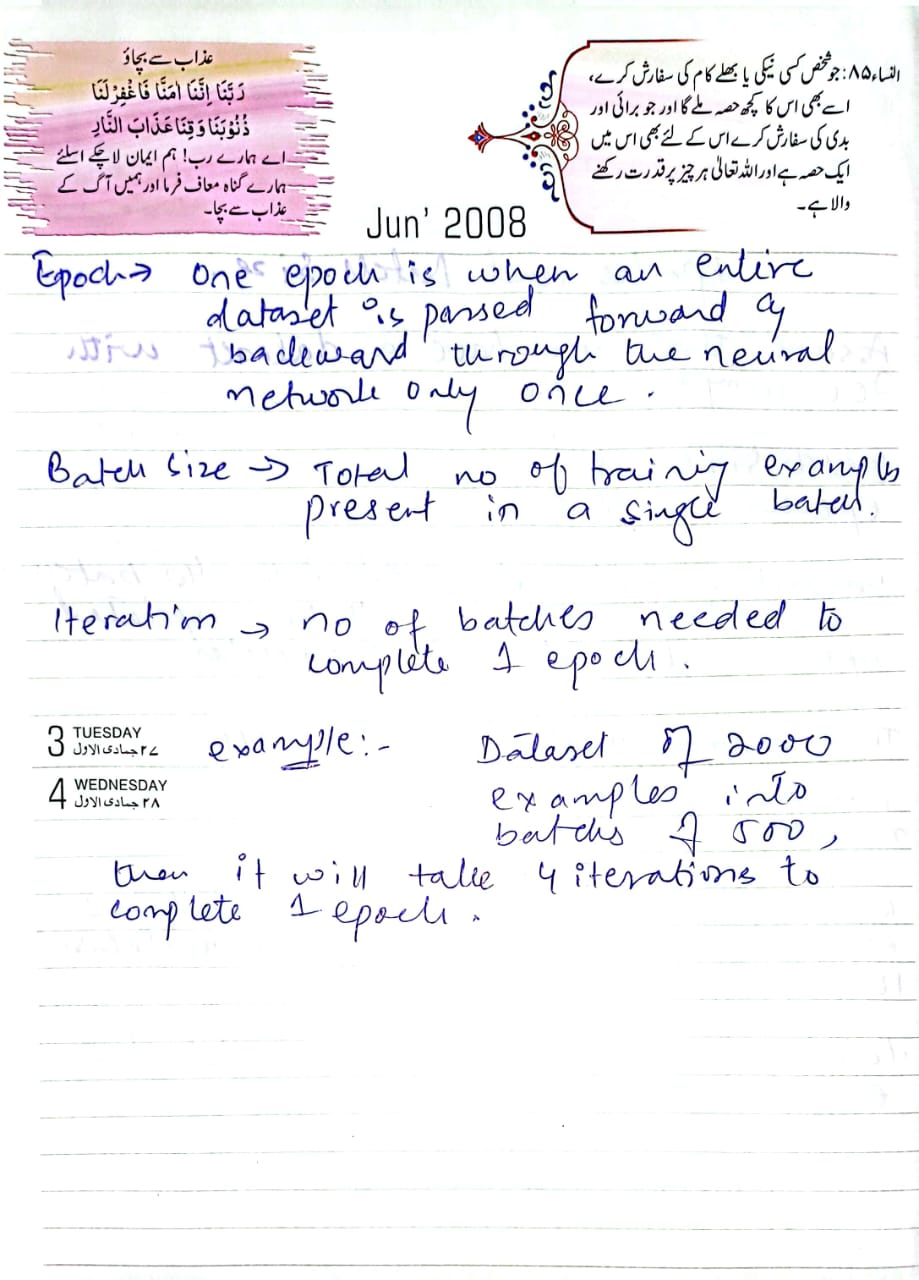 عذاب سے بچاؤ
رَبَّنَا اِنَّنَا اٰمَنَّا فَاغْفِرْ لَنَا
ذُنُوْبَنَا وَقِنَا عَذَابَ النَّارِ
اے ہمارے رب! ہم ایمان لاچکے اسلئے
ہمارے گناہ معاف فرما اور ہمیں آگ کے
عذاب سے بچا۔
النساء ۸۵: جو شخص کسی نیکی یا بھلے کام کی سفارش کرے،
اسے بھی اس کا کچھ حصہ ملے گا اور جو برائی اور
بدی کی سفارش کرے اس کے لئے بھی اس میں
ایک حصہ ہے اور اللہ تعالٰی ہر چیز پر قدرت رکھنے
والا ہے۔
Jun' 2008
Epoch → One epoch is when an entire
dataset is passed forward &
backward through the neural
network only once.
Batch size → Total no of training examples
present in a single batch.
Iteration → no of batches needed to
complete 1 epoch.
3 TUESDAY
۲۷ جمادی الاول
example:-
Dataset of 2000
4 WEDNESDAY
۲۸ جمادی الاول
examples into
batchs of 500,
then it will take 4 iterations to
complete 1 epoch.